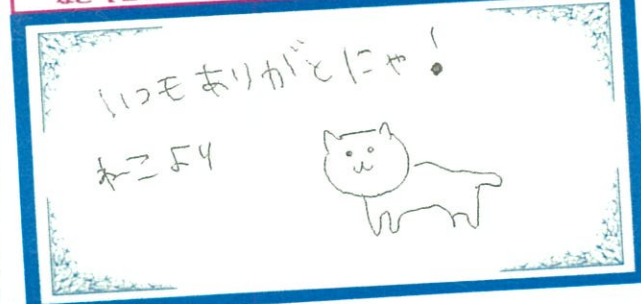 いつもありがとにゃ!
ねこより